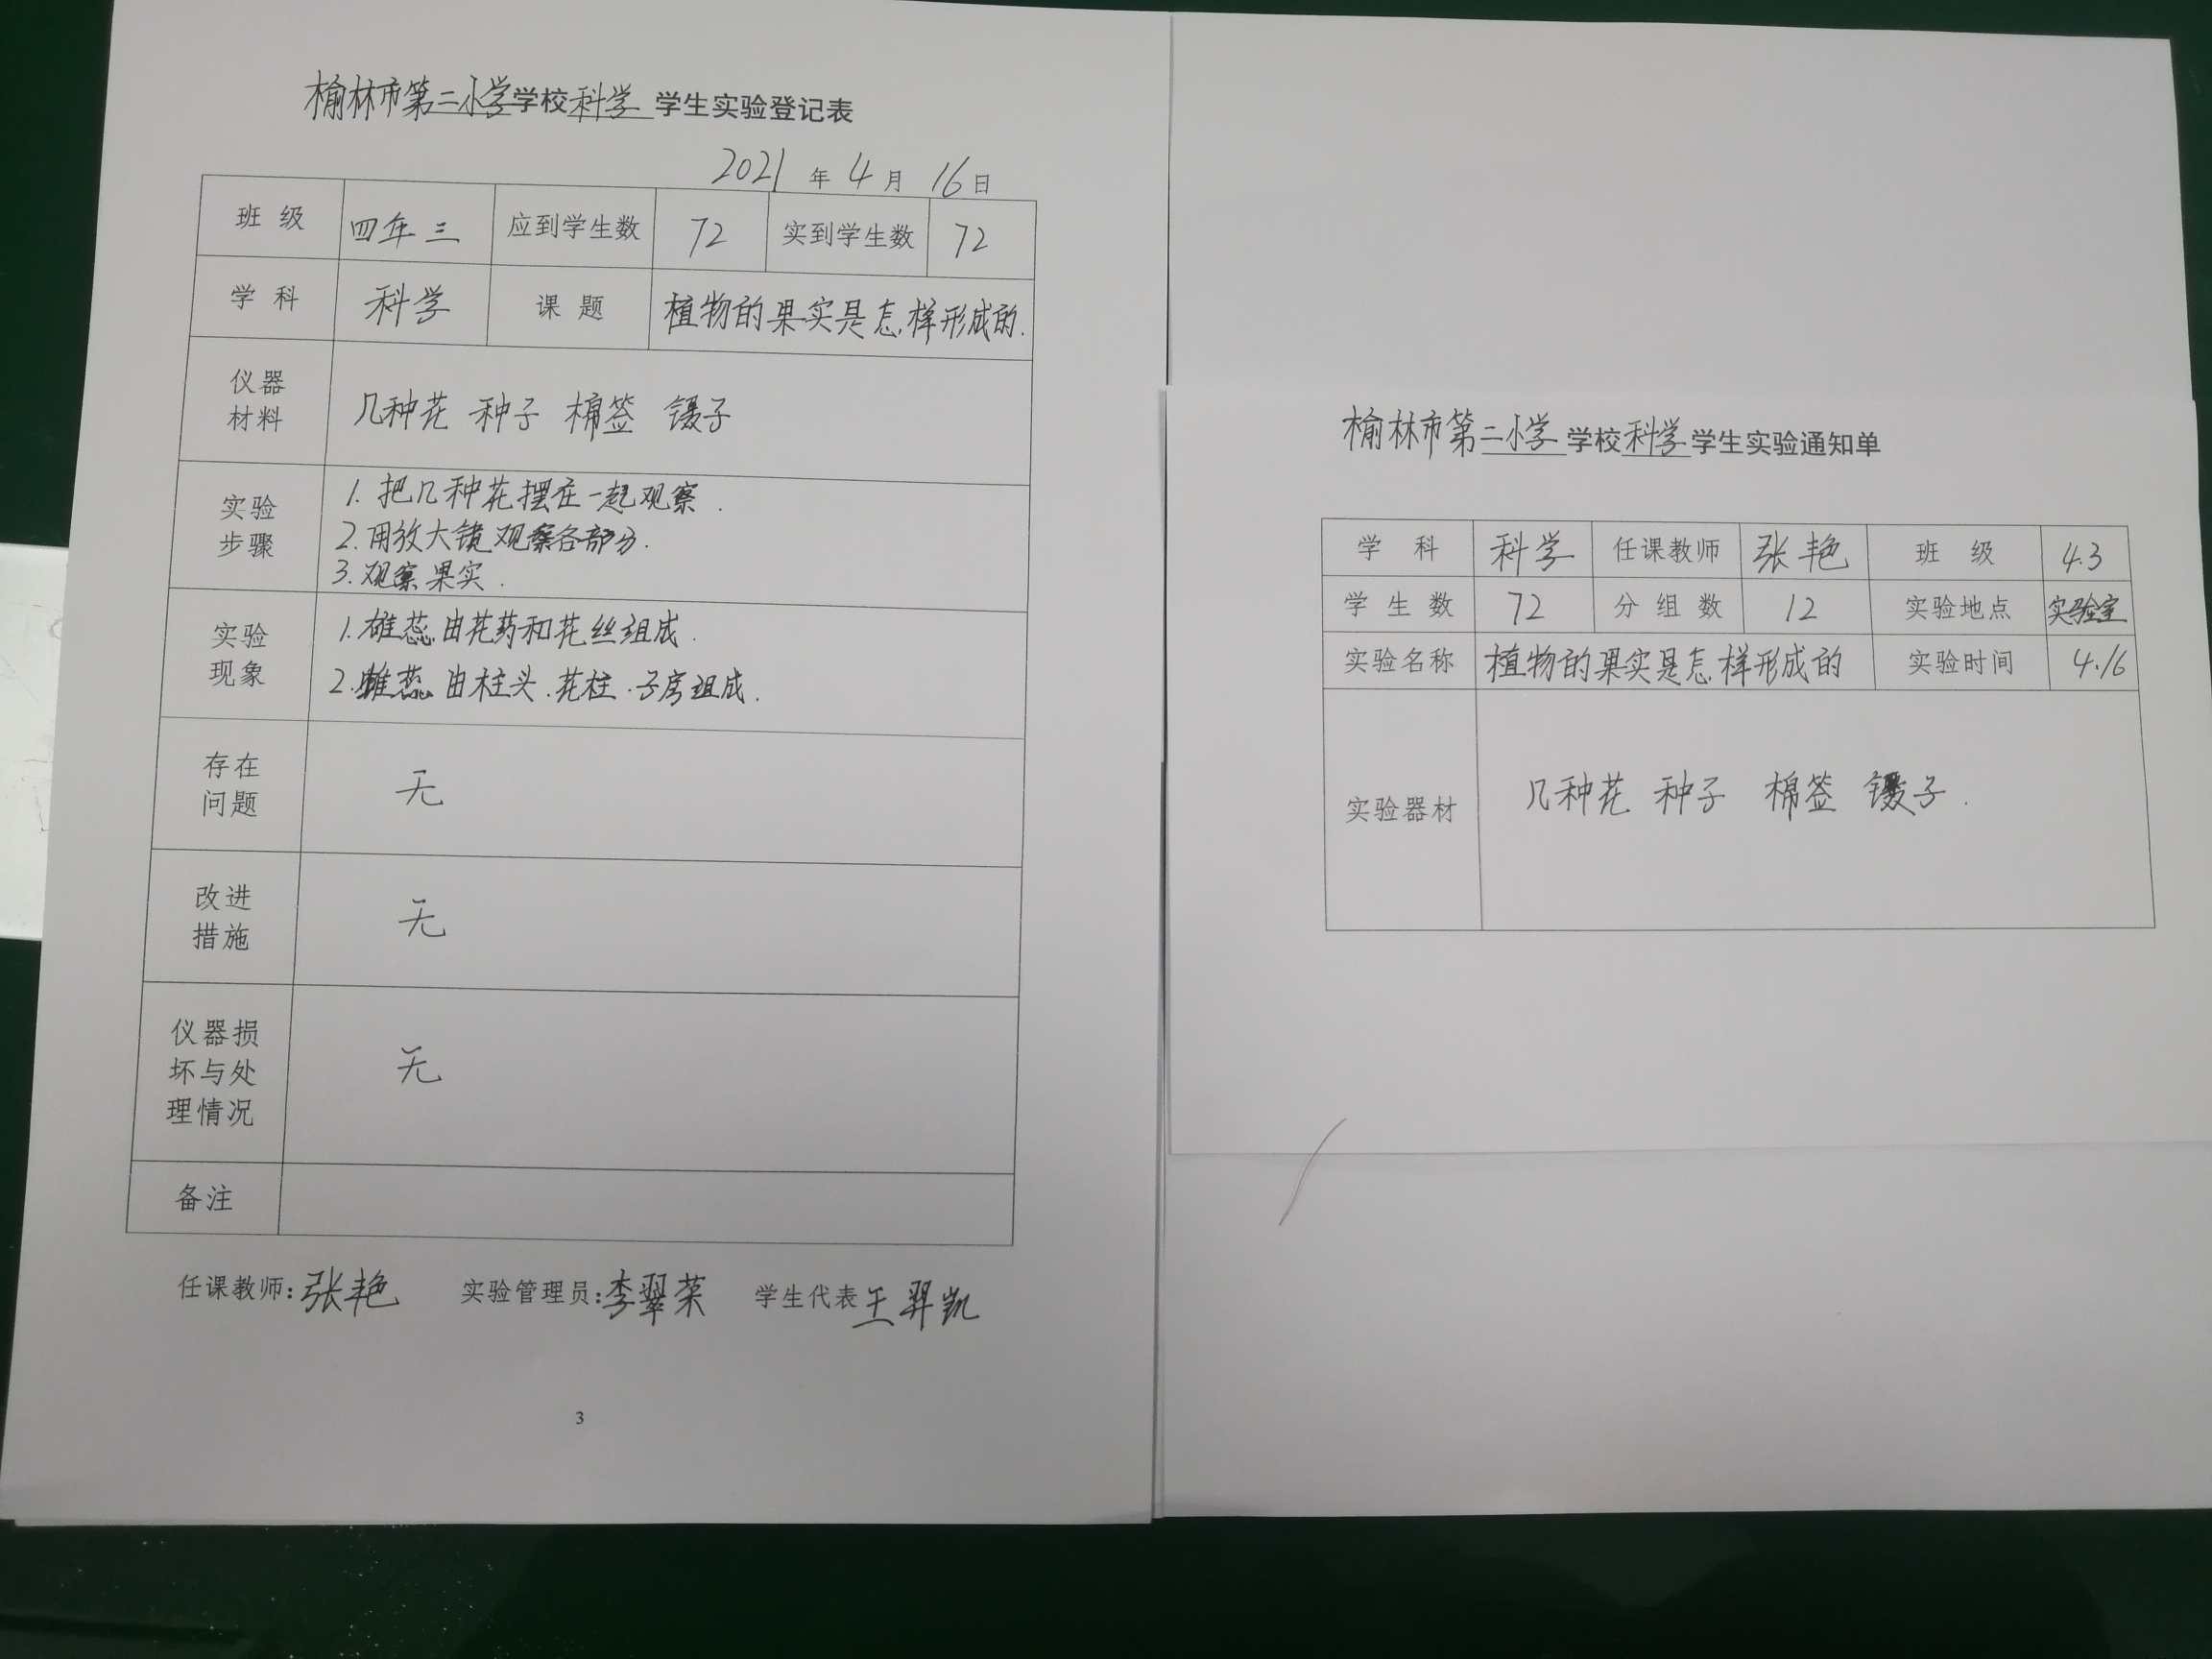 榆林市第二小学学校科学 学生实验登记表
2021 年 4 月 16 日
班 级 四年三 应到学生数 72 实到学生数 72
学 科 科学 课 题 植物的果实是怎样形成的.
仪器
材料
几种花 种子 棉签 镊子
实验
步骤
1. 把几种花摆在一起观察.
2. 用放大镜观察各部分.
3. 观察果实.
实验
现象
1. 雄蕊由花药和花丝组成.
2. 雌蕊由柱头.花柱.子房组成.
存在
问题
无
改进
措施
无
仪器损
坏与处
理情况
无
备注
任课教师:张艳 实验管理员:李翠荣 学生代表王羿凯
3
榆林市第二小学学校科学学生实验通知单
学 科 科学 任课教师 张艳 班 级 4.3
学 生 数 72 分 组 数 12 实验地点 实验室
实验名称 植物的果实是怎样形成的 实验时间 4.16
实验器材 几种花 种子 棉签 镊子.